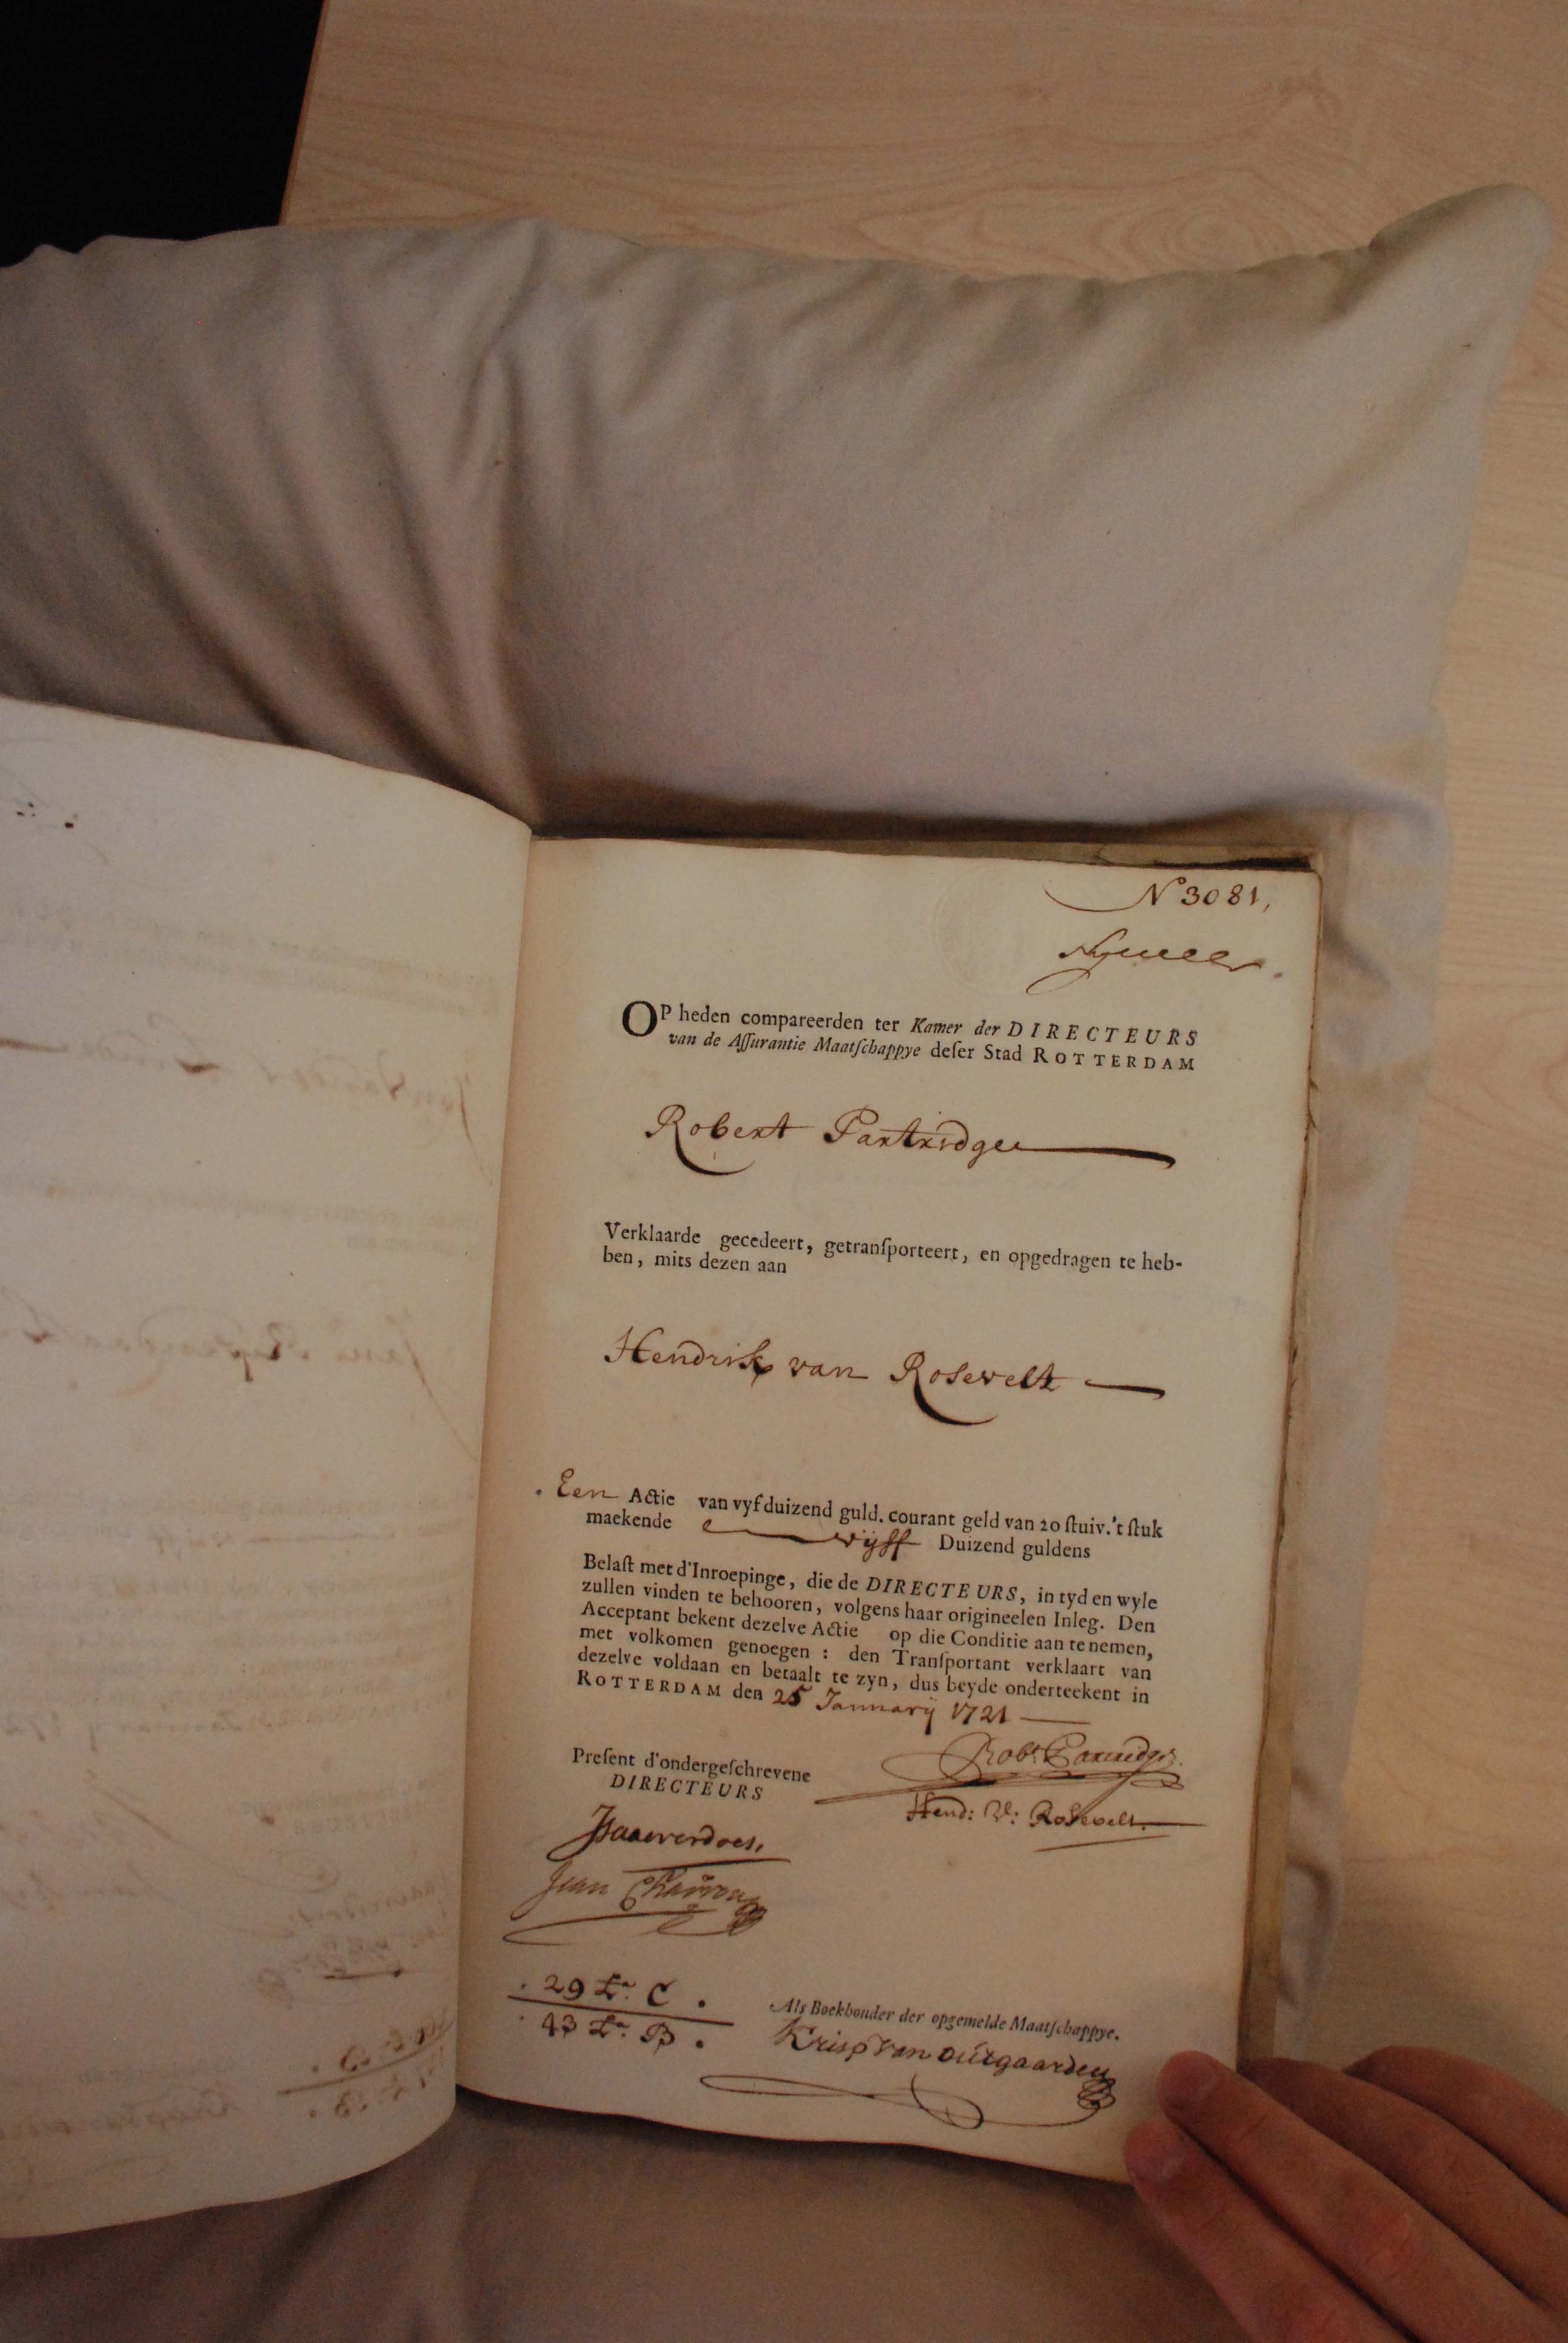 N° 3081,
OP heden compareerden ter Kamer der DIRECTEURS
van de Aſſurantie Maatſchappye deſer Stad ROTTERDAM
Robert Partridgee
Verklaarde gecedeert, getranſporteert, en opgedragen te heb-
ben, mits dezen aan
Hendrik van Rosevelt
Een Actie van vyf duizend guld. courant geld van 20 ſtuiv. 't ſtuk
maekende vyff Duizend guldens
Belaſt met d'Inroepinge, die de DIRECTEURS, in tyd en wyle
zullen vinden te behooren, volgens haar origineelen Inleg. Den
Acceptant bekent dezelve Actie op die Conditie aan te nemen,
met volkomen genoegen : den Tranſportant verklaart van
dezelve voldaan en betaalt te zyn, dus beyde onderteekent in
ROTTERDAM den 25 Januarij 1721
Robt Partridge
Preſent d'ondergeſchrevene
DIRECTEURS
Hend: V: Rosevelt
Jean
29 La. C.
43 La. B.
Als Boekhouder der opgemelde Maatſchappye.
Krisp van outgaarden